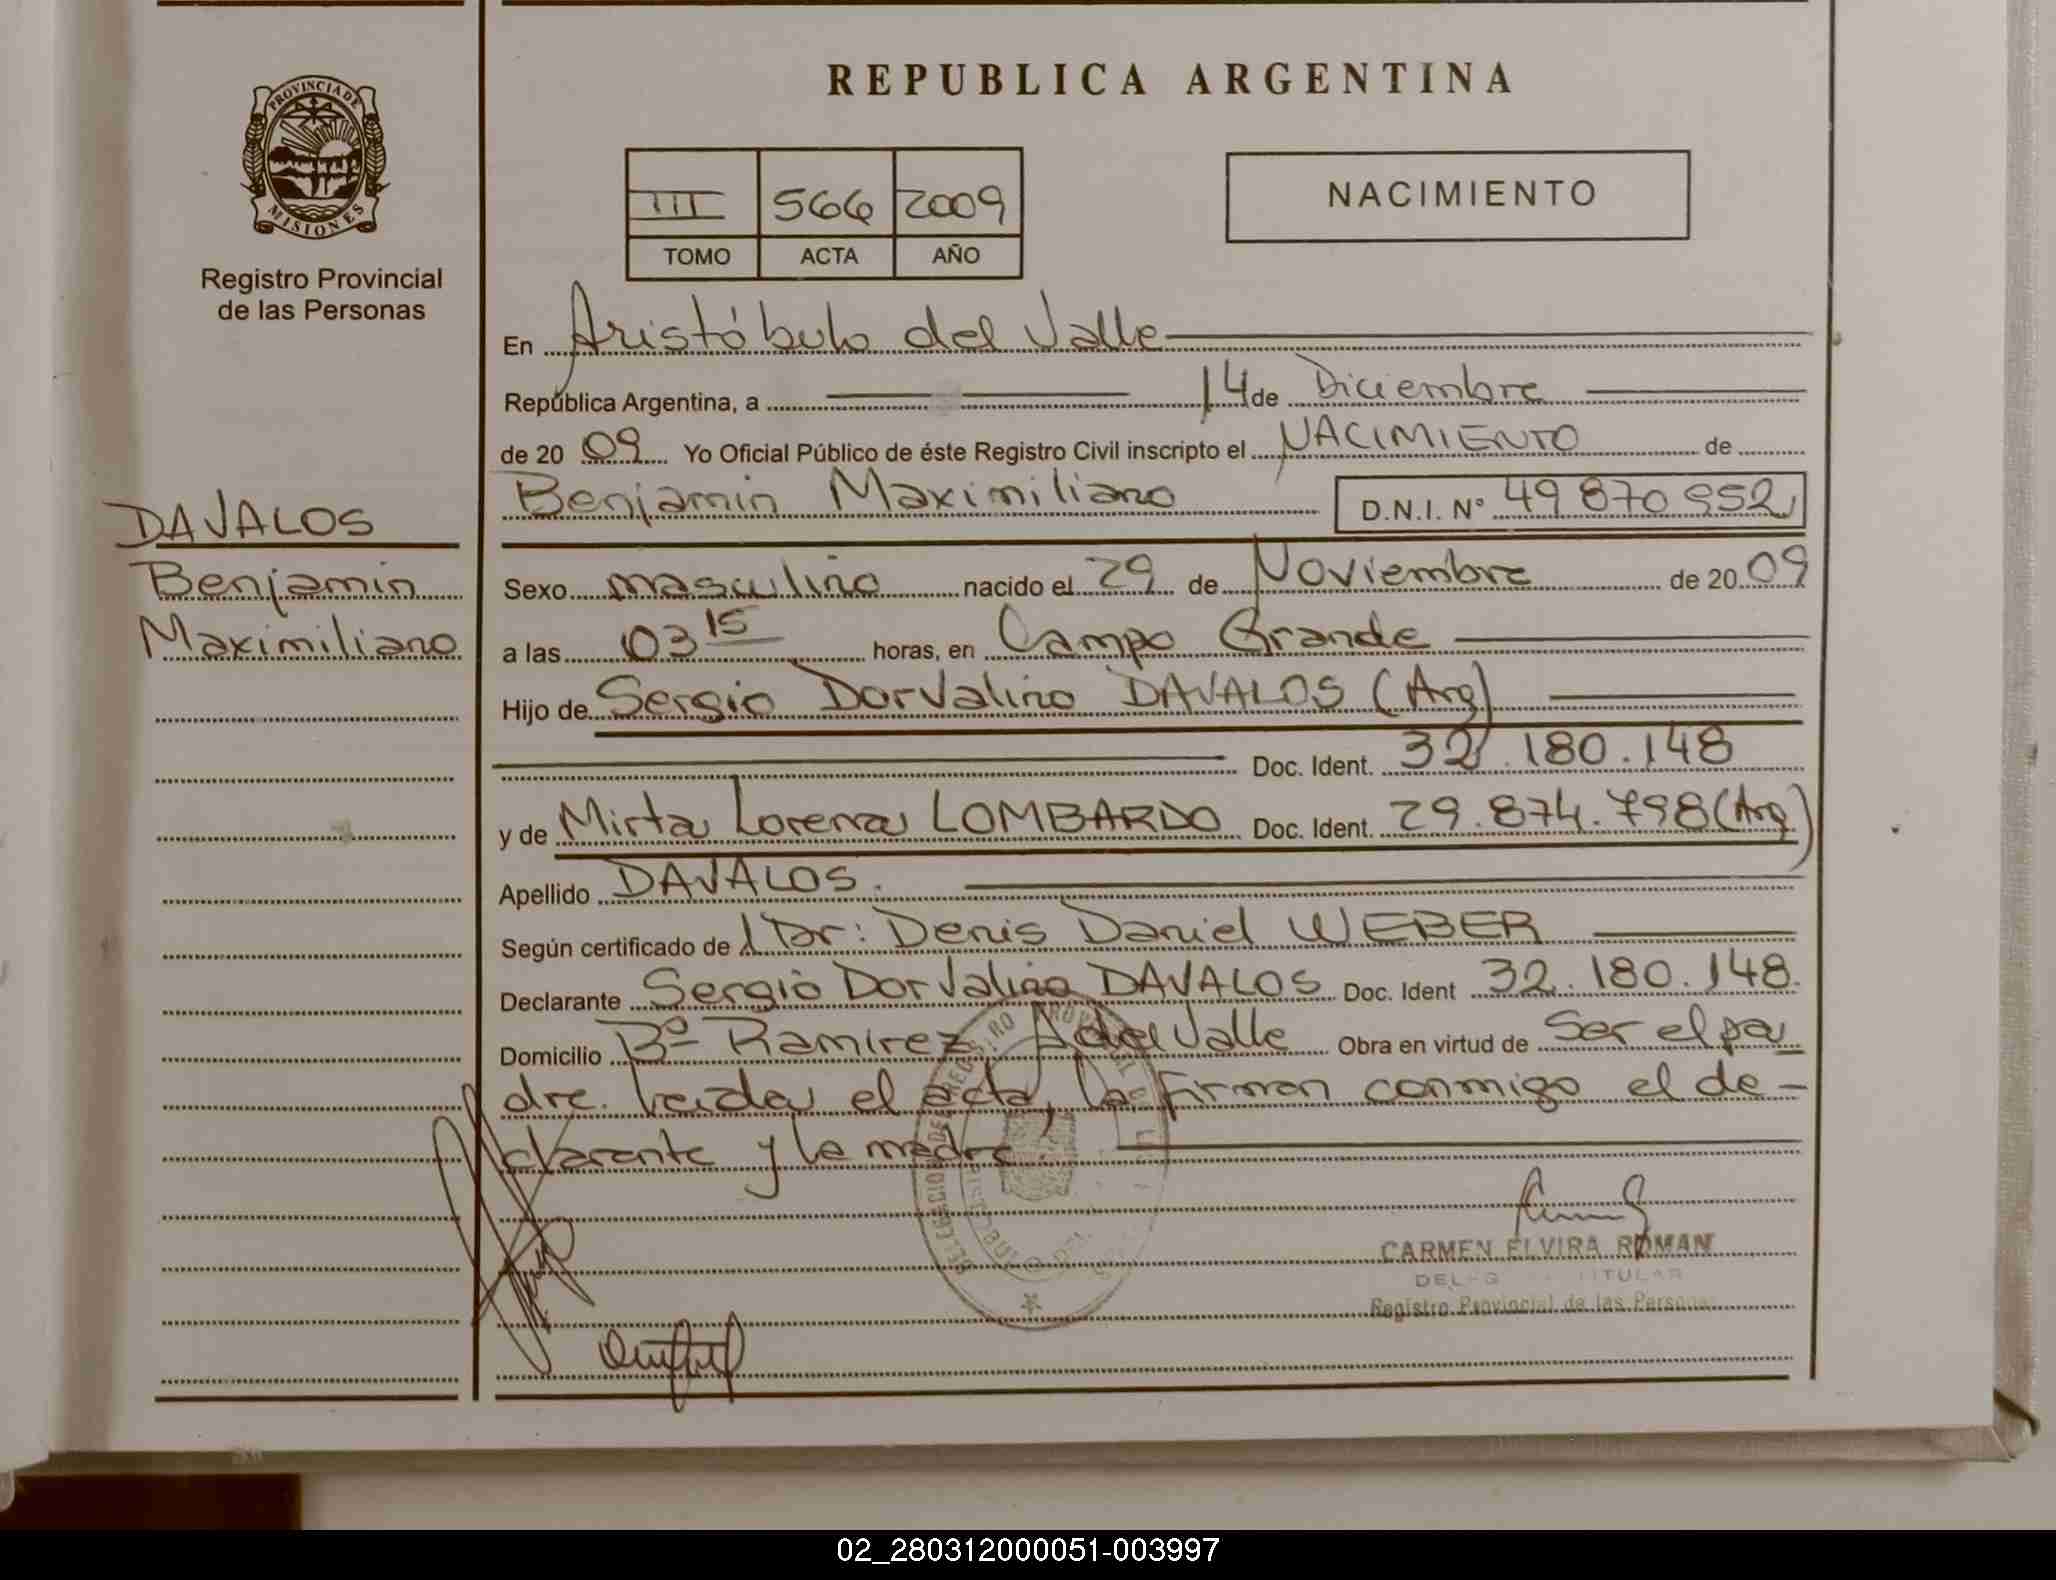 REPUBLICA ARGENTINA
PROVINCIA DE MISIONES
Registro Provincial
de las Personas
III 566 2009
TOMO ACTA AÑO
NACIMIENTO
En Aristóbulo del Valle
República Argentina, a 14 de Diciembre
de 20 09 Yo Oficial Público de éste Registro Civil inscripto el NACIMIENTO de
Benjamin Maximiliano D.N.I. N° 49 870 952
DAVALOS
Benjamin
Maximiliano
Sexo masculino nacido el 29 de Noviembre de 20 09
a las 03 15 horas, en Campo Grande
Hijo de Sergio Dorvalino DAVALOS (Arg)
Doc. Ident. 32.180.148
y de Mirta Lorena LOMBARDO Doc. Ident. 29.874.798 (Arg)
Apellido DAVALOS.
Según certificado de Dr: Denis Daniel WEBER
Declarante Sergio Dorvalino DAVALOS Doc. Ident 32.180.148.
Domicilio Bº Ramirez, A del Valle Obra en virtud de Ser el pa
dre. Leida el acta, la firman conmigo el de-
clarante y la madre.
CARMEN ELVIRA ROMAN
Registro Provincial de las Personas
02_280312000051-003997